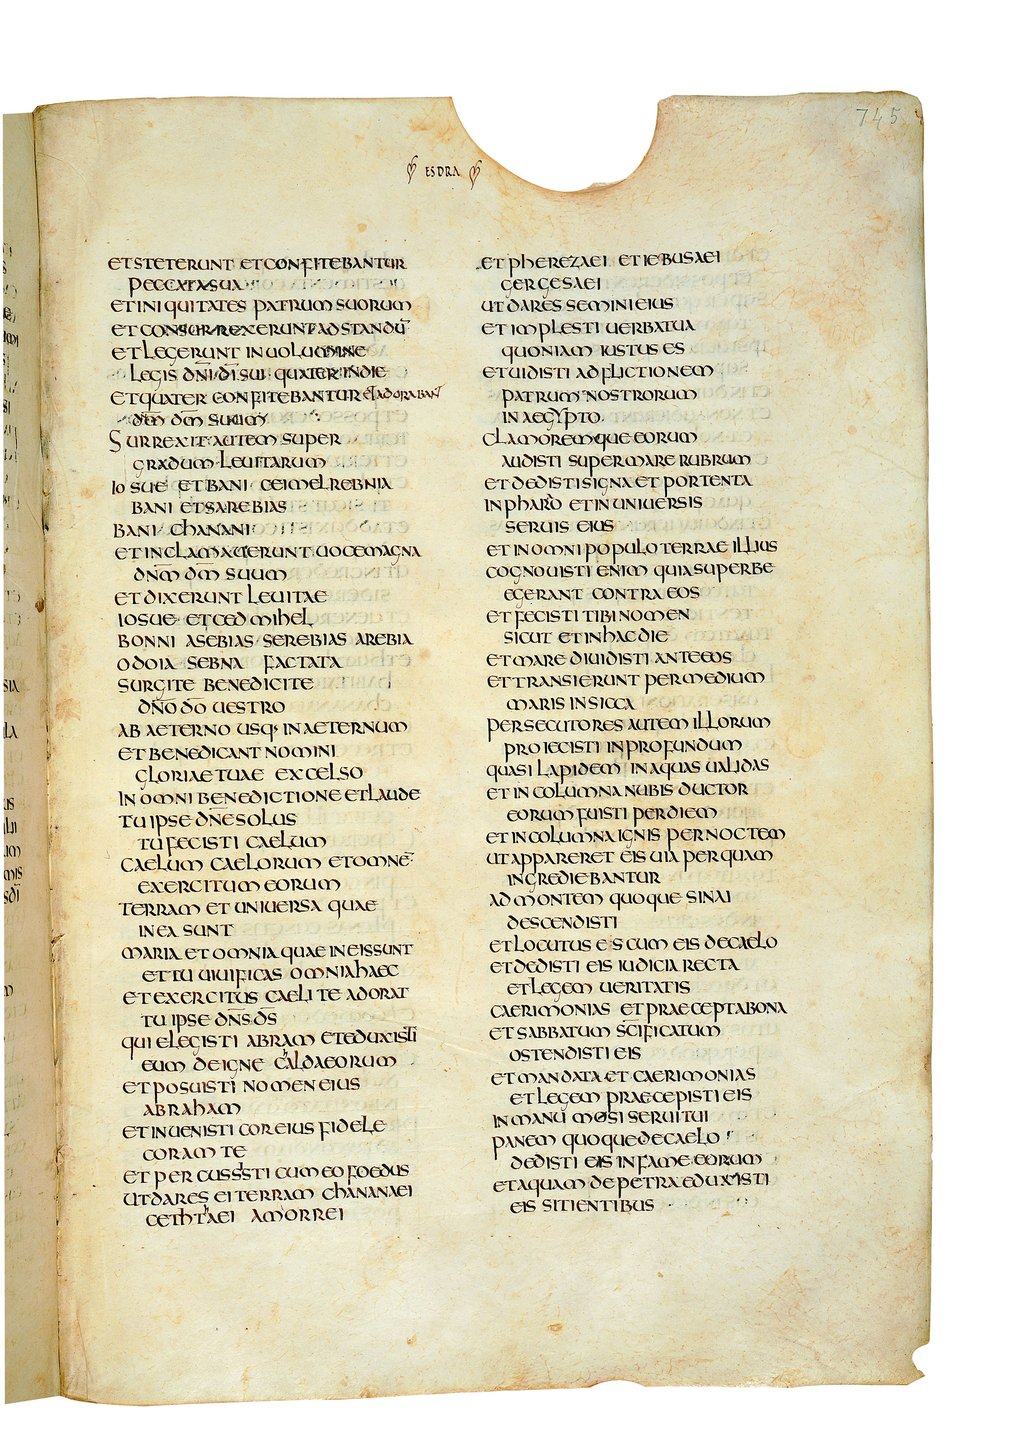 745
ESDRA
ET STETERUNT ET CONFITEBANTUR
PECCATA SUA
ET INIQUITATES PATRUM SUORUM
ET CONSURREXERUNT AD STANDŪ
ET LEGERUNT IN UOLUMINE
LEGIS DN̄I DĪ SUI QUATER IN DIE
ET QUATER CONFITEBANTUR ET ADORABANT
DN̄M DM̄ SUUM
SURREXIT AUTEM SUPER
GRADUM LEUITARUM
IOSUE ET BANI CEIMEL REBNIA
BANI ET SAREBIAS
BANI CHANANI
ET INCLAMAUERUNT UOCE MAGNA
DN̄M DM̄ SUUM
ET DIXERUNT LEUITAE
IOSUE ET CEDMIHEL
BONNI ASEBIAS SEREBIAS AREBIA
ODOIA SEBNA FACTATA
SURGITE BENEDICITE
DN̄O DŌ UESTRO
AB AETERNO USQ· IN AETERNUM
ET BENEDICANT NOMINI
GLORIAE TUAE EXCELSO
IN OMNI BENEDICTIONE ET LAUDE
TU IPSE DN̄E SOLUS
TU FECISTI CAELUM
CAELUM CAELORUM ET OMNĒ
EXERCITUM EORUM
TERRAM ET UNIUERSA QUAE
IN EA SUNT
MARIA ET OMNIA QUAE IN EIS SUNT
ET TU UIUIFICAS OMNIA HAEC
ET EXERCITUS CAELI TE ADORAT
TU IPSE DN̄S DS̄
QUI ELEGISTI ABRAM ET EDUXISTI
EUM DE IGNE CALDAEORUM
ET POSUISTI NOMEN EIUS
ABRAHAM
ET INUENISTI COR EIUS FIDELE
CORAM TE
ET PERCUSSISTI CUM EO FOEDUS
UT DARES EI TERRAM CHANANAEI
CETHTAEI AMORREI
ET PHEREZAEI ET IEBUSAEI
GERGESAEI
UT DARES SEMINI EIUS
ET IMPLESTI UERBA TUA
QUONIAM IUSTUS ES
ET UIDISTI ADFLICTIONEM
PATRUM NOSTRORUM
IN AEGYPTO
CLAMOREMQUE EORUM
AUDISTI SUPER MARE RUBRUM
ET DEDISTI SIGNA ET PORTENTA
IN PHARO ET IN UNIUERSIS
SERUIS EIUS
ET IN OMNI POPULO TERRAE ILLIUS
COGNOUISTI ENIM QUIA SUPERBE
EGERANT CONTRA EOS
ET FECISTI TIBI NOMEN
SICUT ET IN HAC DIE
ET MARE DIUIDISTI ANTE EOS
ET TRANSIERUNT PER MEDIUM
MARIS IN SICCA
PERSECUTORES AUTEM ILLORUM
PROIECISTI IN PROFUNDUM
QUASI LAPIDEM IN AQUAS UALIDAS
ET IN COLUMNA NUBIS DUCTOR
EORUM FUISTI PER DIEM
ET IN COLUMNA IGNIS PER NOCTEM
UT APPARERET EIS UIA PER QUAM
INGREDIEBANTUR
AD MONTEM QUOQUE SINAI
DESCENDISTI
ET LOCUTUS ES CUM EIS DE CAELO
ET DEDISTI EIS IUDICIA RECTA
ET LEGEM UERITATIS
CAERIMONIAS ET PRAECEPTA BONA
ET SABBATUM SC̄IFICATUM
OSTENDISTI EIS
ET MANDATA ET CAERIMONIAS
ET LEGEM PRAECEPISTI EIS
IN MANU MOSI SERUI TUI
PANEM QUOQUE DE CAELO
DEDISTI EIS IN FAME EORUM
ET AQUAM DE PETRA EDUXISTI
EIS SITIENTIBUS